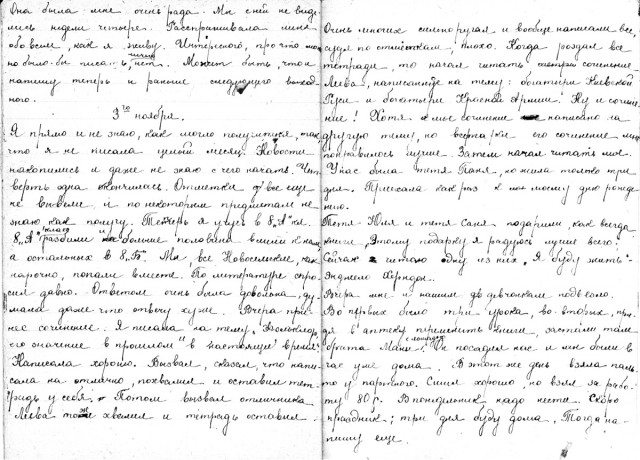 Она была мне очень рада. Мы с ней не виде-
лись недели четыре. Расспрашивала меня
обо всем, как я живу. Интересного, про что мож-
но было-бы писать, ничего нет. Может быть, что и
напишу теперь и раньше следующего выход-
ного.
9го ноября.
Я прямо и не знаю, как могло получиться, так,
что я не писала целый месяц. Новости
накопились и даже не знаю с чего начать. Чет-
верть одна окончилась. Отметки все еще
не вывели, и по некоторым предметам не
знаю как получу. Теперь я учусь в 8 „А" кл.
8 „Я" класс разбили и больше половина влили к нам,
а остальных в 8 „Б". Мы, все Новосельские, как
нарочно, попали вместе. По литературе спро-
сил давно. Ответом очень была довольна, ду-
мала даже что отвечу хуже. Вчера при-
нес сочинение. Я писала на тему „Фольклор,
его значение в прошлом и в настоящее время"
Написала хорошо. Вызвал, сказал, что напи-
сала на отлично, похвалил и оставил тет-
радь у себя. Потом вызвал отличника
Лева тоже хвалил и тетрадь оставил.
Очень многих сильно ругал и вообще написали все,
судя по отметкам, плохо. Когда роздал все
тетради, то начал читать сочинение
Левы, написанное на тему: богатыри Киевской
Руси и богатыри Красной Армии. Ну и сочине-
ние! Хотя мое сочинение написано на
другую тему, но все таки его сочинение мне
понравилось лучше. Затем начал читать мое.
У нас была тетя Таня, но жила только три
дня. Приехала как раз к моему дню рожде-
нию.
Тетя Юля и тетя Саня подарили, как всегда
книги. Этому подарку я радуюсь лучше всего!
Сейчас читаю одну из них „Я буду жить" -
Энджело Херндон.
Вчера мне и нашим девчонкам подвезло.
Во первых было три урока, во-вторых, при-
дя в аптеку переменить книги, застали там
брата Мани с лошадью. Он посадил нас и мы были в
час уже дома. В этот же день взяла паль-
то у портного. Сшил хорошо, но взял за рабо-
ту 80 р. В понедельник надо нести. Скоро
праздник; три дня буду дома. Тогда на-
пишу еще.